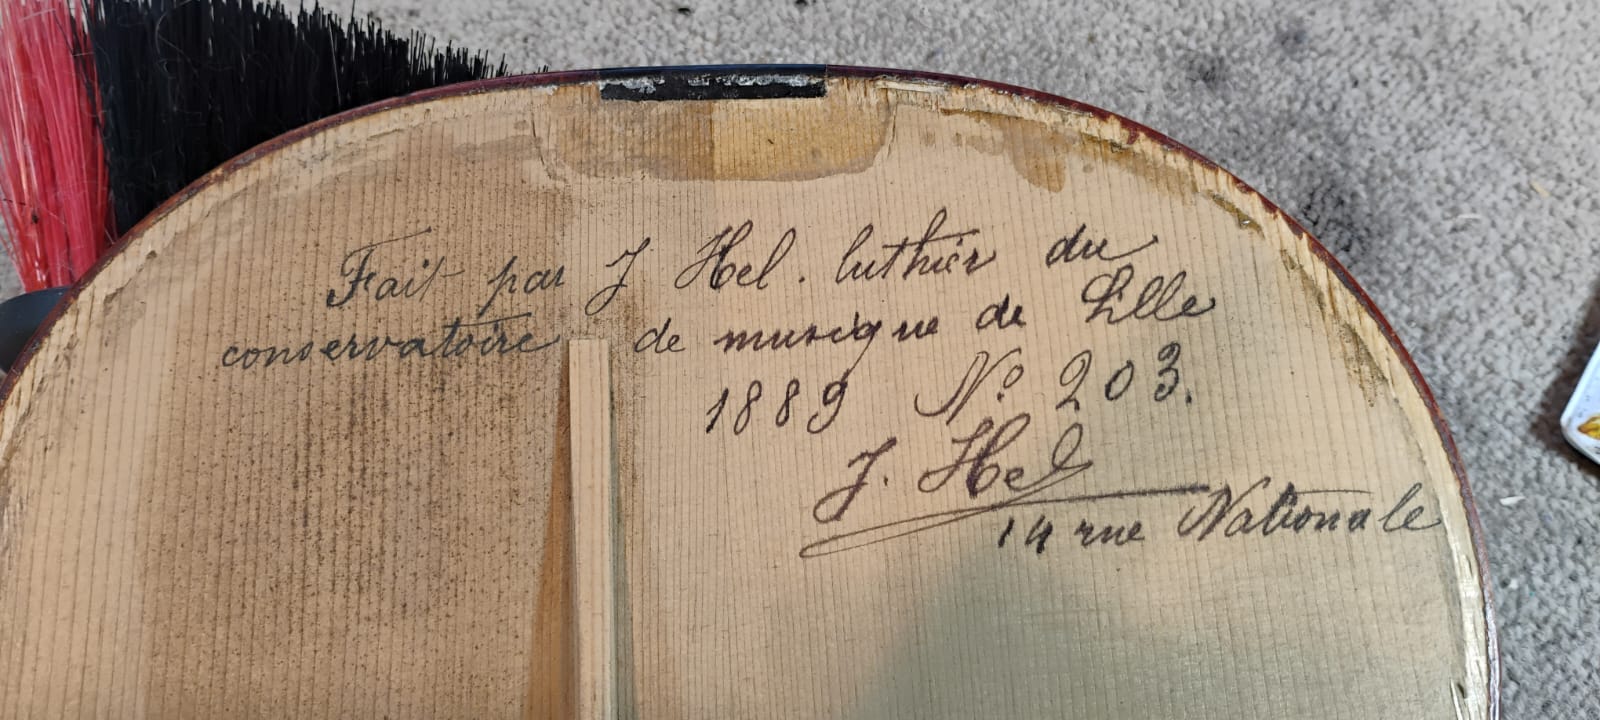 Fait par J Hel. luthier du
conservatoire de musique de Lille
1889 No. 203.
J. Hel
14 rue Nationale